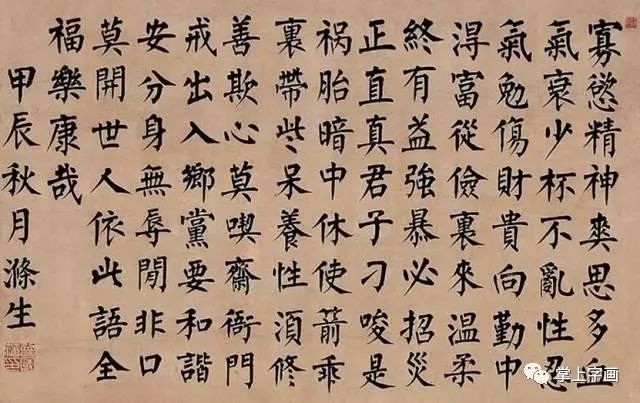 寡慾精神爽思多血
氣衰少杯不亂性忍
氣勉傷財貴向勤中
淂富從儉裏來温柔
終有益強暴必招災
正直真君子刁唆是
祸胎暗中休使箭乖
裏帶些呆養性須修
善欺心莫喫齋衙門
戒出入鄉黨要和諧
安分身無辱閒非口
莫開世人依此語全
福樂康哉
甲辰秋月滌生
掌上字画